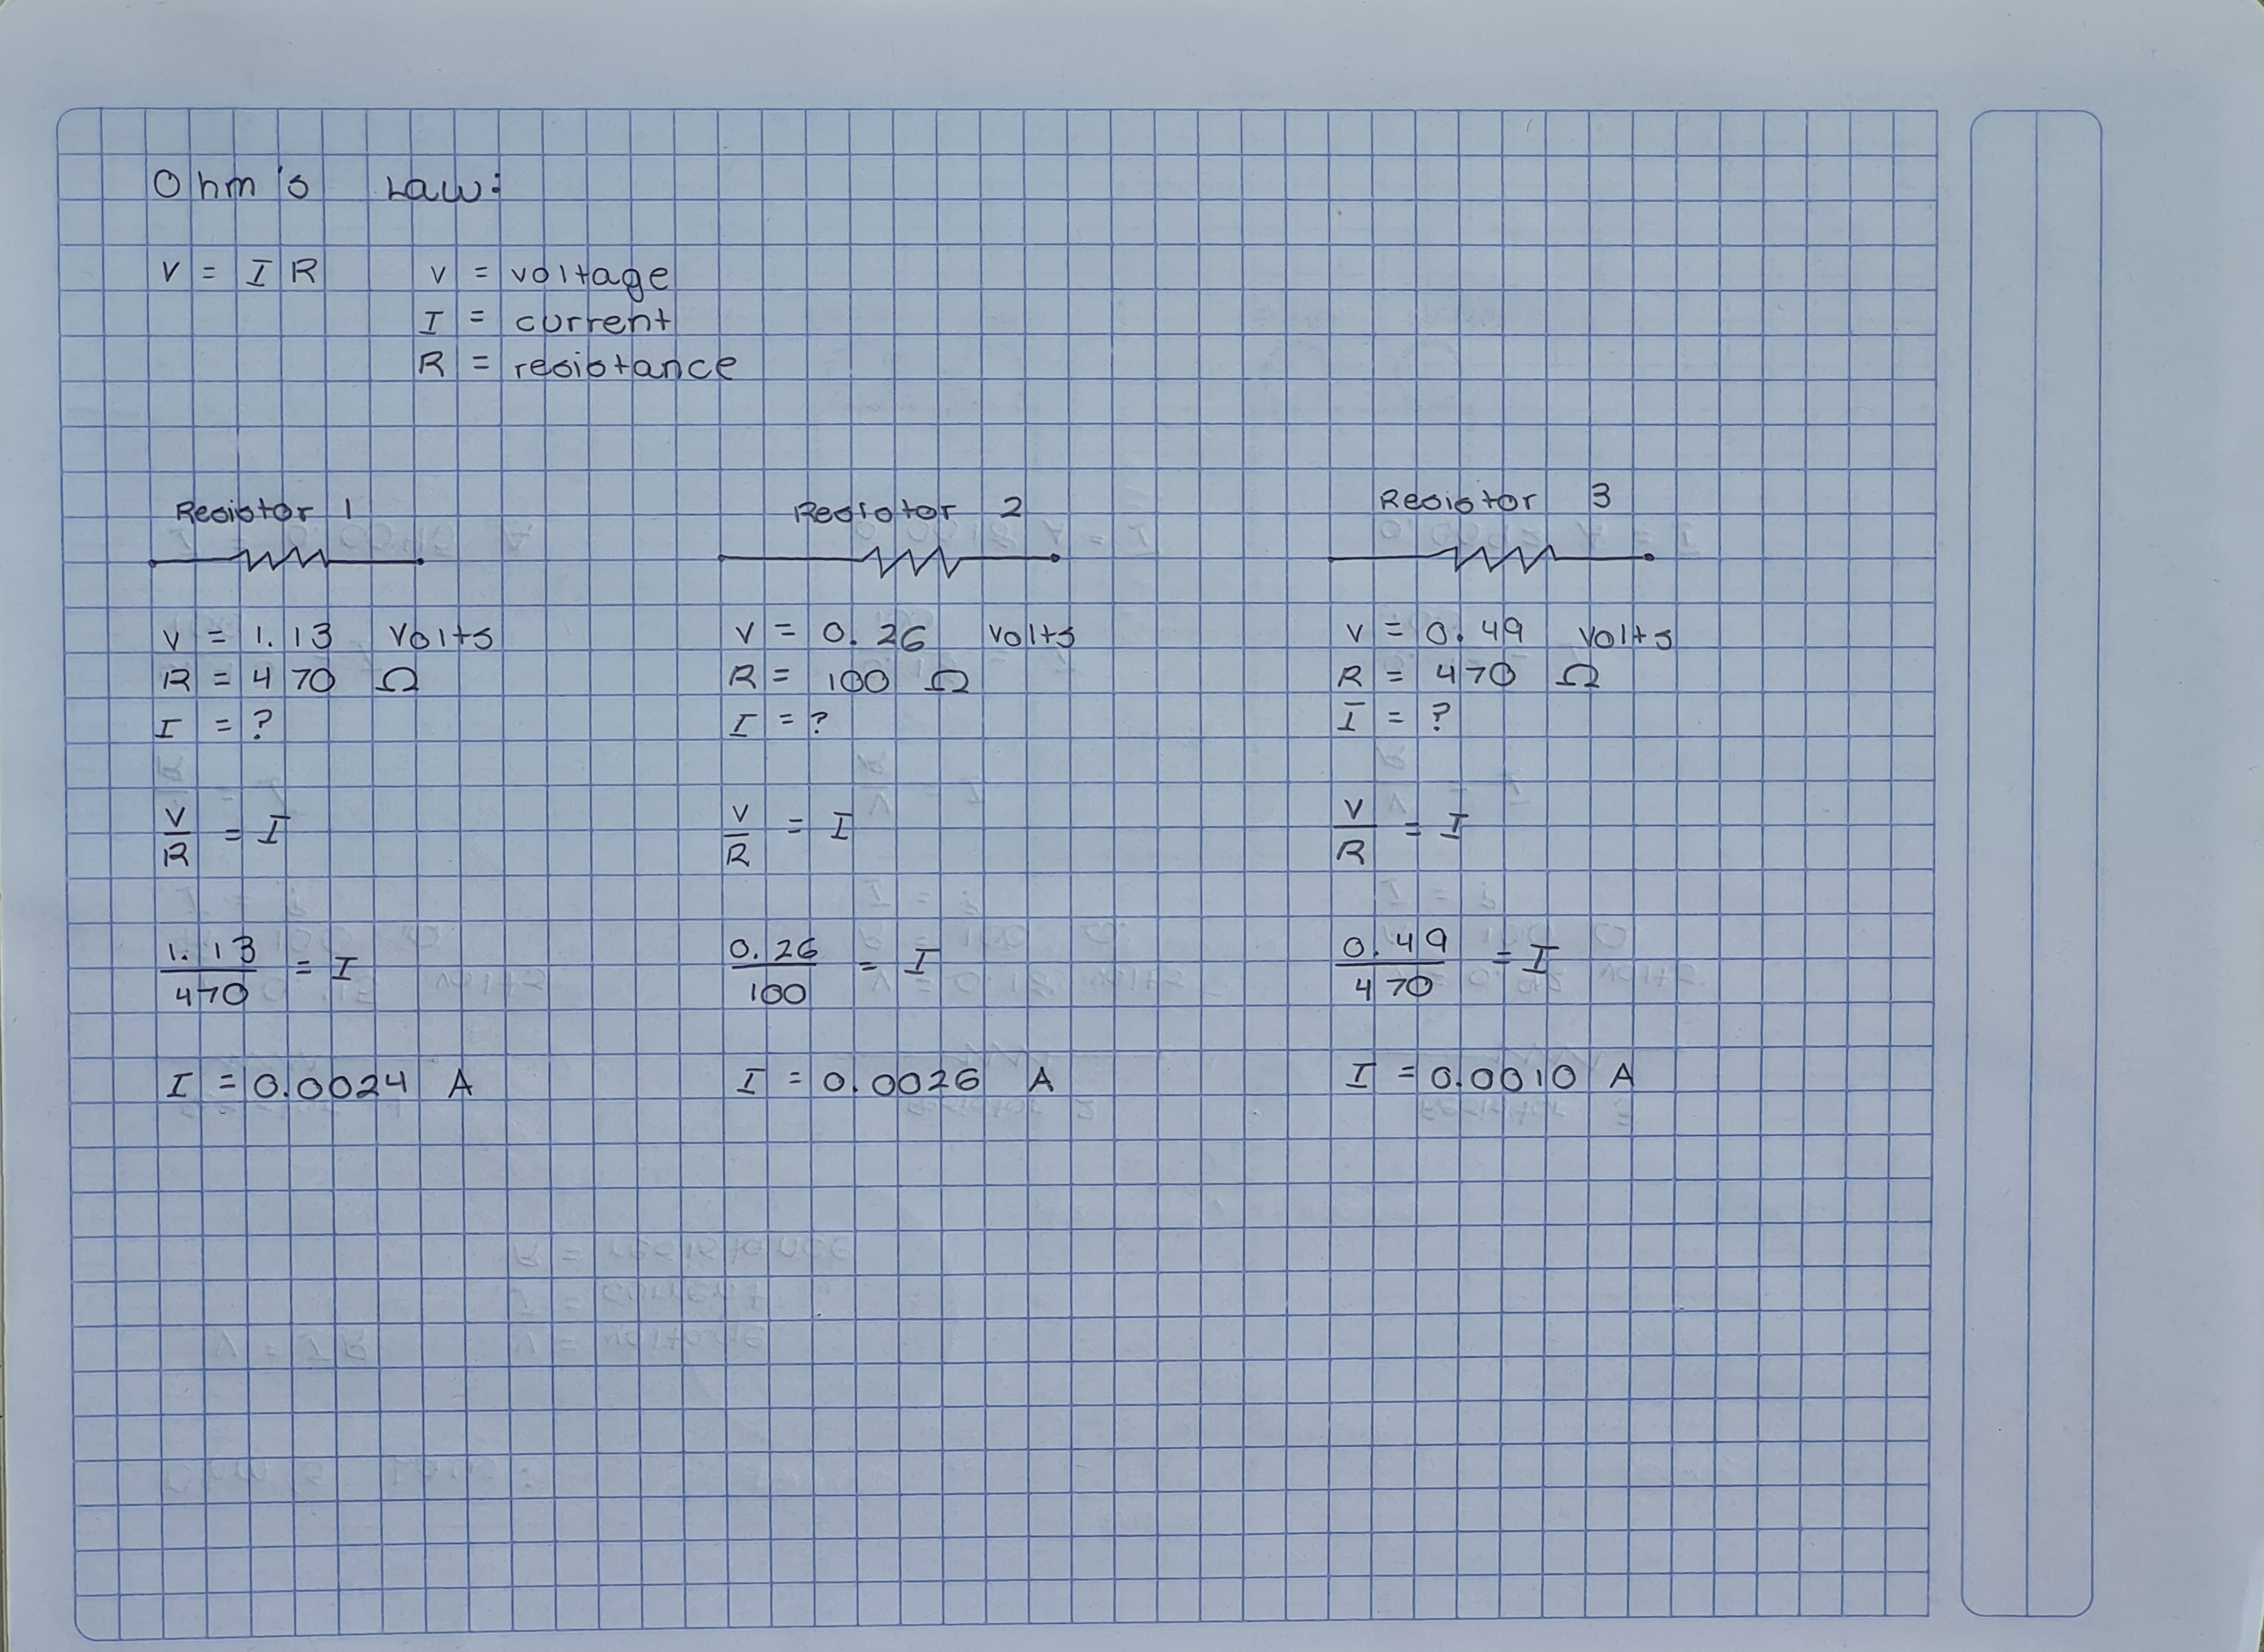 Ohm's Law:
V = I R
V = voltage
I = current
R = resistance
Resistor 1
V = 1.13 Volts
R = 470 Ω
I = ?
V/R = I
1.13/470 = I
I = 0.0024 A
Resistor 2
V = 0.26 Volts
R = 100 Ω
I = ?
V/R = I
0.26/100 = I
I = 0.0026 A
Resistor 3
V = 0.49 Volts
R = 470 Ω
I = ?
V/R = I
0.49/470 = I
I = 0.0010 A